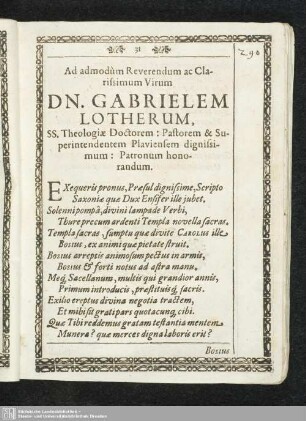 31
Ad admodùm Reverendum ac Cla-
rissimum Virum
DN. GABRIELEM
LOTHERUM,
SS. Theologiæ Doctorem: Pastorem & Su-
perintendentem Plaviensem dignissi-
mum: Patronum hono-
randum.
EXequeris pronus, Præsul dignissime, Scripto
Saxoniæ quæ Dux Ensifer ille jubet.
Solenni pompâ, divini lampade Verbi,
Thure precum ardenti Templa novella sacras.
Templa sacras, sumptu quæ divite CAROLUS ille
Bosius, ex animi quæ pietate struit.
Bosius arreptis animosum pectus in armis,
Bosius & forti notus ad astra manu.
Meq; Sacellanum, multis qui grandior annis,
Primum introducis, præstituisq; sacris.
Exilio ereptus divina negotia tractem,
Et mihi sit grati pars quotacunq; cibi.
Quæ Tibi reddemus gratam testantia mentem
Munera? quæ merces digna laboris erit?
Bosius